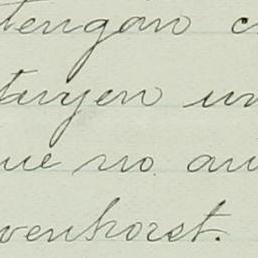 tengan
tuyen un
ue no au
venhorst.